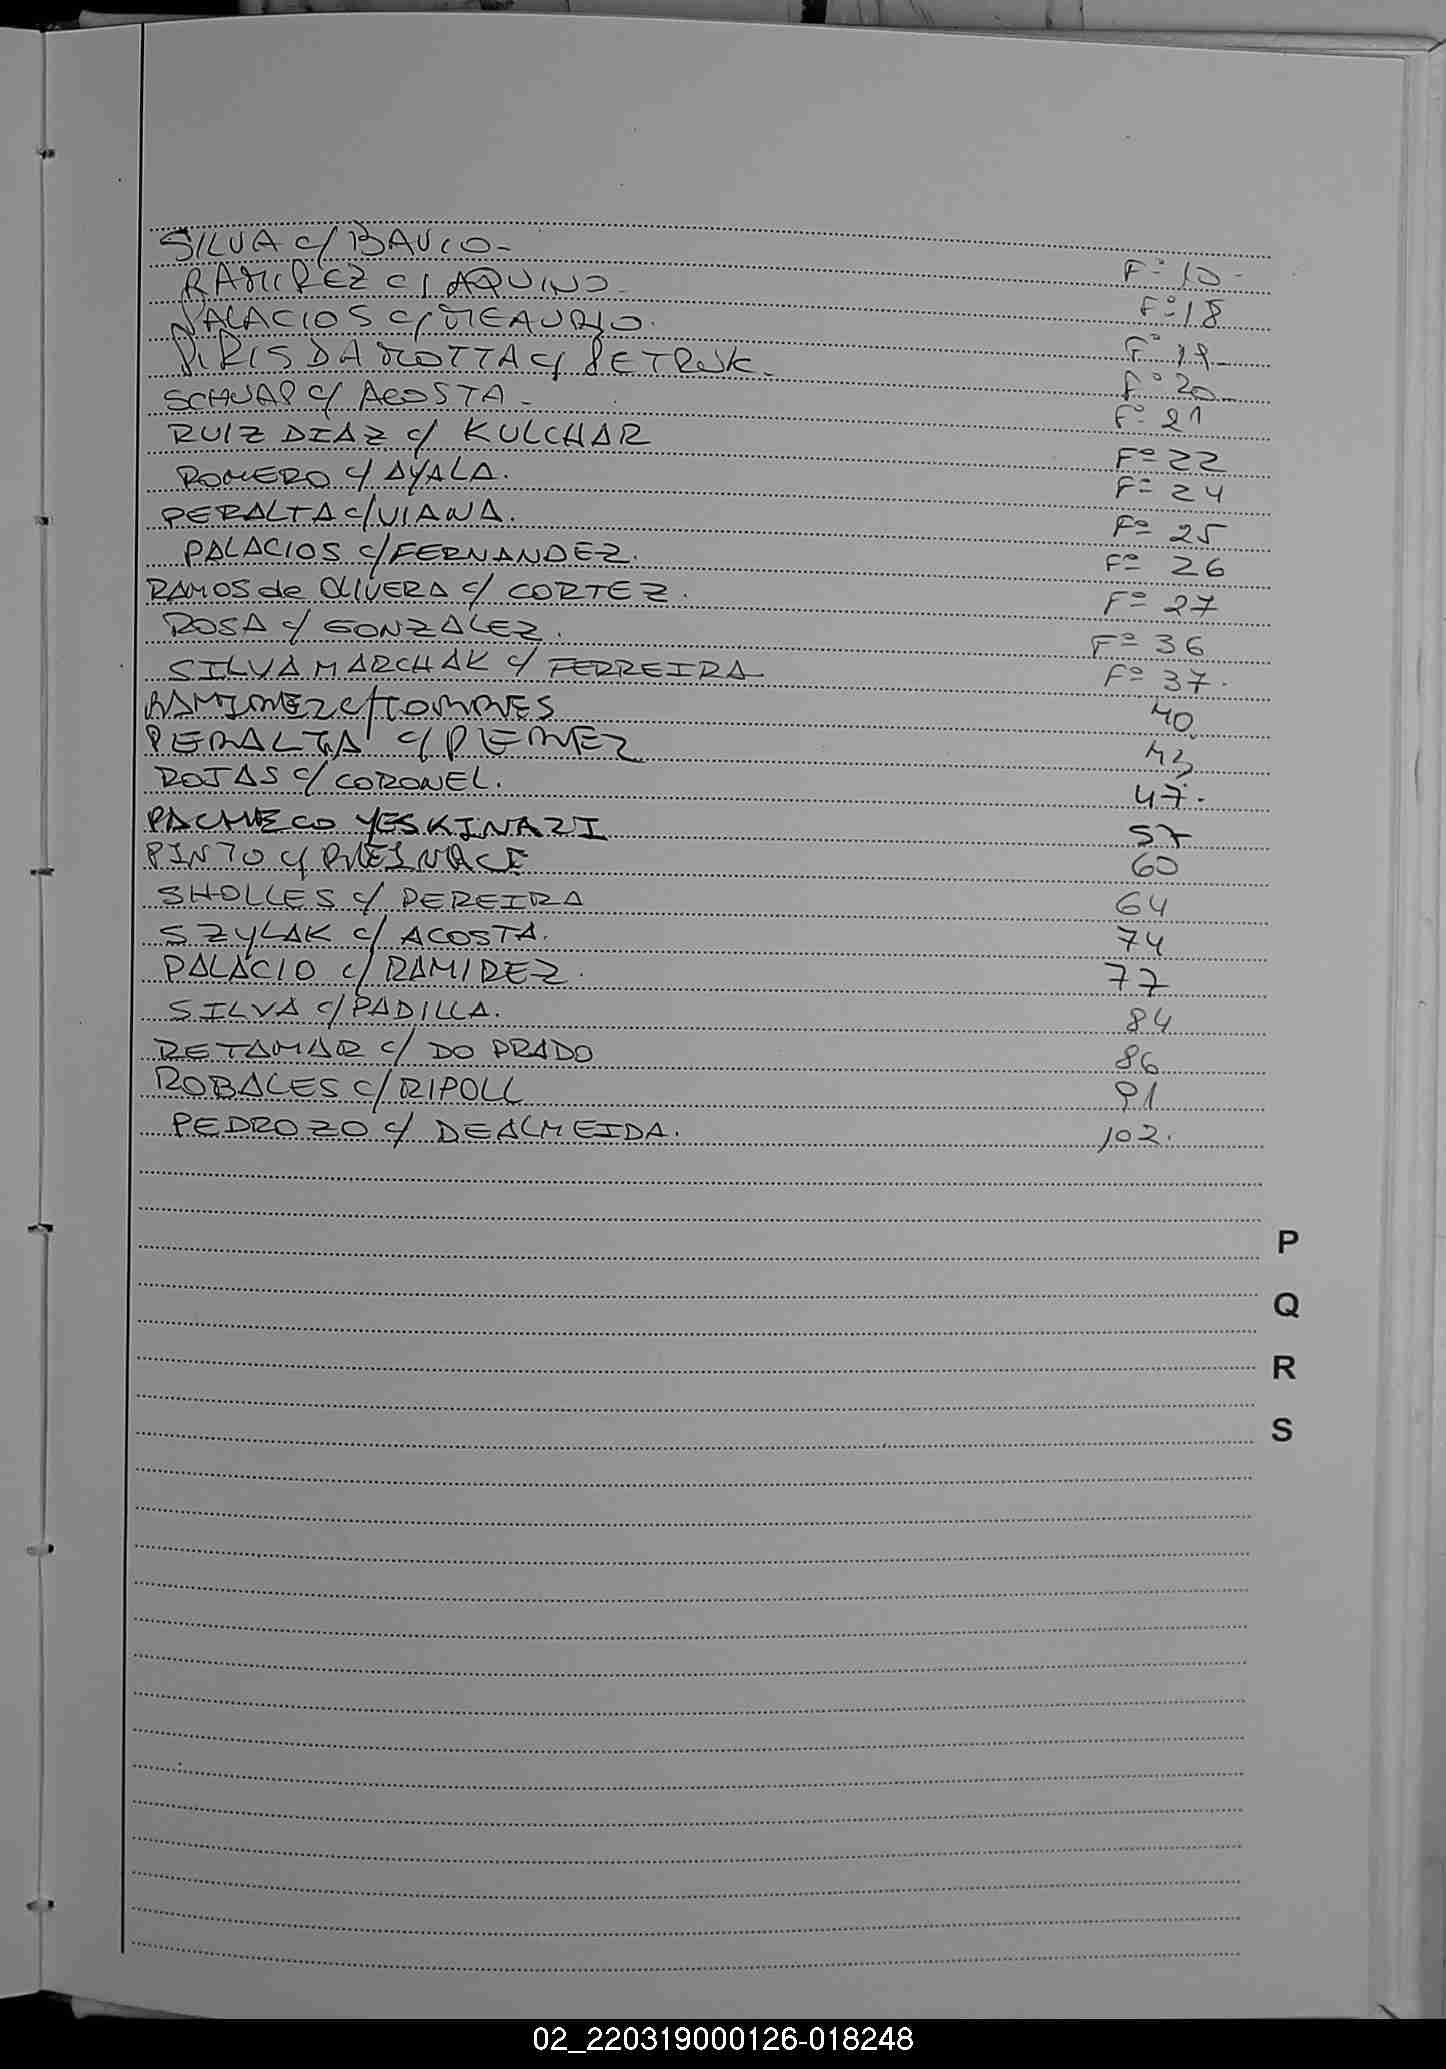 SILVA c/ BAUCO- F° 10-
RAMIREZ c/ AQUINO- F° 18
PALACIOS c/ MEAURIO. F° 19-
PIRIS DA MOTTA c/ PETRUK- F° 20-
SCHUAP c/ ACOSTA- F° 21
RUIZ DIAZ c/ KULCHAR F° 22
ROMERO c/ AYALA. F° 24
PERALTA c/ VIANA. F° 25
PALACIOS c/ FERNANDEZ. F° 26
RAMOS de OLIVERA c/ CORTEZ. F° 27
ROSA c/ GONZALEZ. F° 36
SILVA MARCHAK c/ FERREIRA F° 37.
RAMIREZ c/ TORRES 40
PERALTA c/ PEREZ 43
ROJAS c/ CORONEL. 47.
PACHECO YESKINAZI 57
PINTO c/ 60
SHOLLES c/ PEREIRA 64
SZYLAK c/ ACOSTA. 74
PALACIO c/ RAMIREZ. 77
SILVA c/ PADILLA. 84
RETAMAR c/ DO PRADO 86
ROBALES c/ RIPOLL 91
PEDROZO c/ DEALMEIDA. 102.
P
Q
R
S
02_220319000126-018248